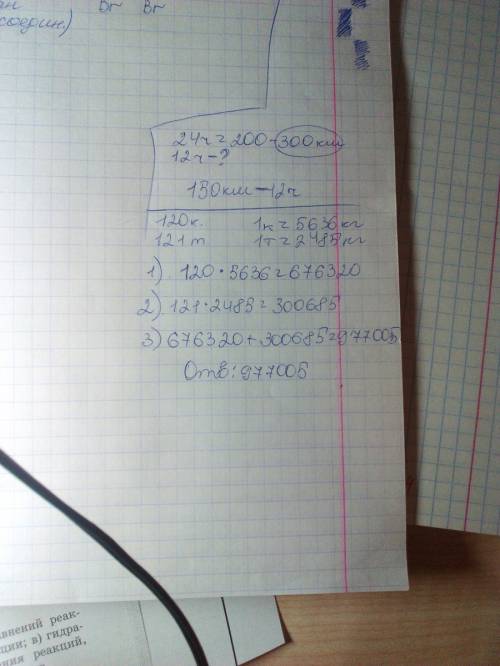 Br Br
соедин.)
24ч = 200-300км
12ч - ?
150км - 12ч
120к. 1к = 5636кг
121т 1т = 2485кг
1) 120 · 5636 = 676320
2) 121 · 2485 = 300685
3) 676320 + 300685 = 977005
Отв: 977005
внений реак-
ции; в) гидра-
ния реакций,